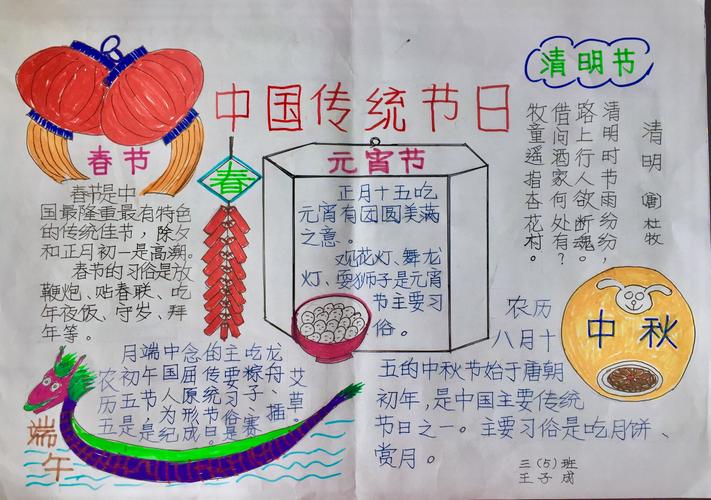 中国传统节日
春节
春节是中
国最隆重最有特色
的传统佳节，除夕
和正月初一是高潮。
春节的习俗是放
鞭炮、贴春联、吃
年夜饭、守岁、拜
年等。
春
元宵节
正月十五吃
元宵有团圆美满
之意。
观花灯、舞龙
灯、耍狮子是元宵
节主要习
俗。
清明节
清明 唐 杜牧
清明时节雨纷纷，
路上行人欲断魂。
借问酒家何处有？
牧童遥指杏花村。
端午
农历五
月初五是
端午节，是
中国人为纪
念屈原形成
的传统节日。
主要习俗是
吃粽子、赛
龙舟、插
艾草。
中秋
农历
八月十
五的中秋节始于唐朝
初年，是中国主要传统
节日之一。主要习俗是吃月饼、
赏月。
三（5）班
王子成